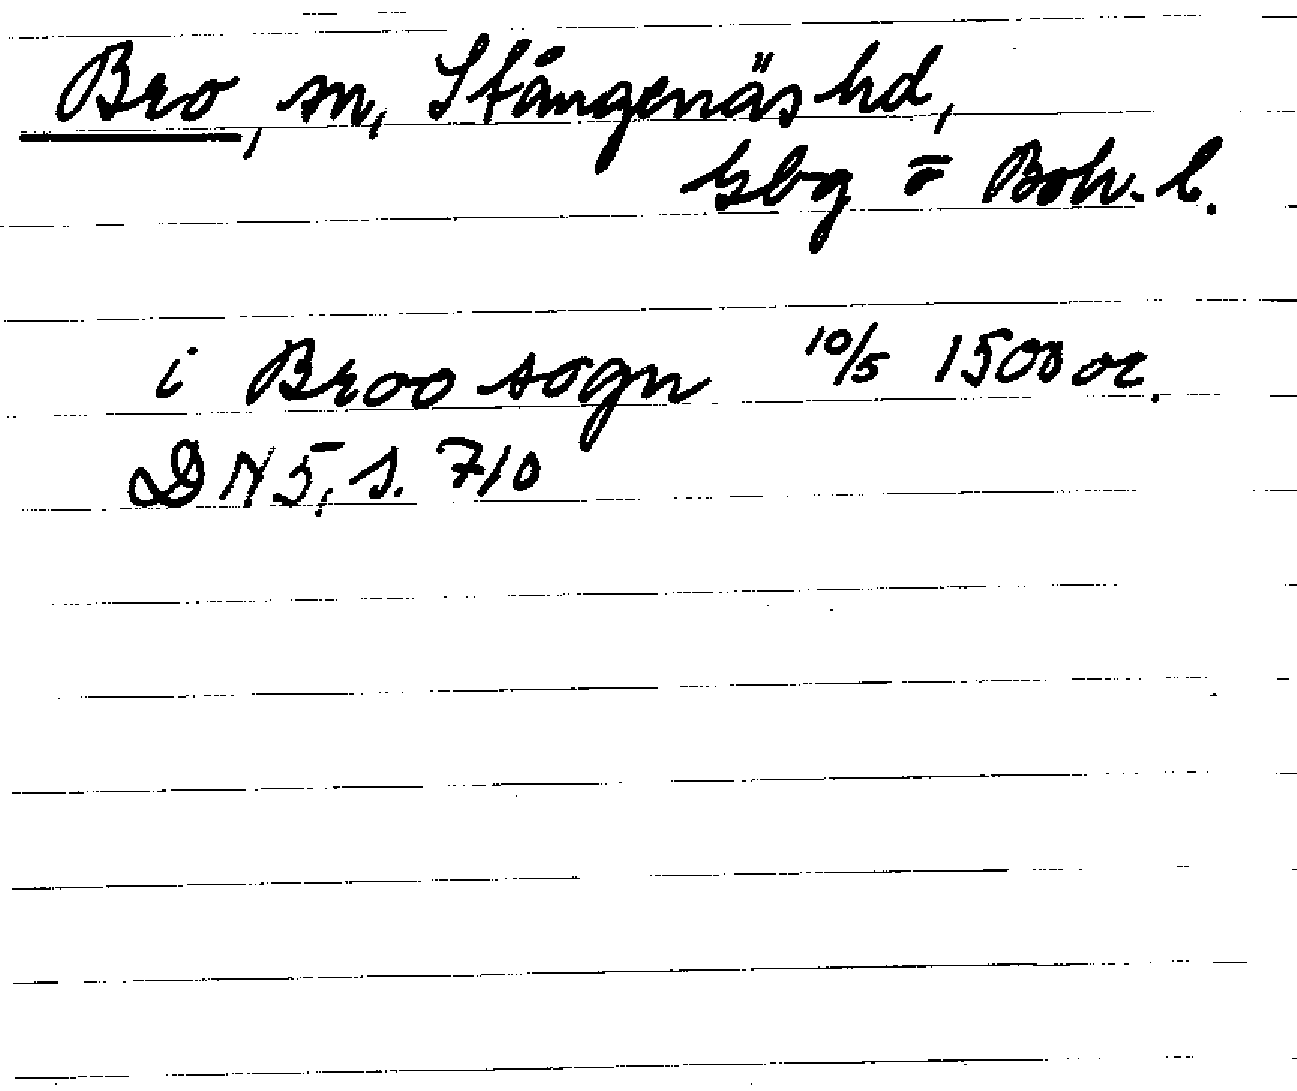 Bro, sn, Stångenäs hd,
Gbg o Boh. l.
i Broo sogn 10/5 1500 or.
DN 5, s. 710